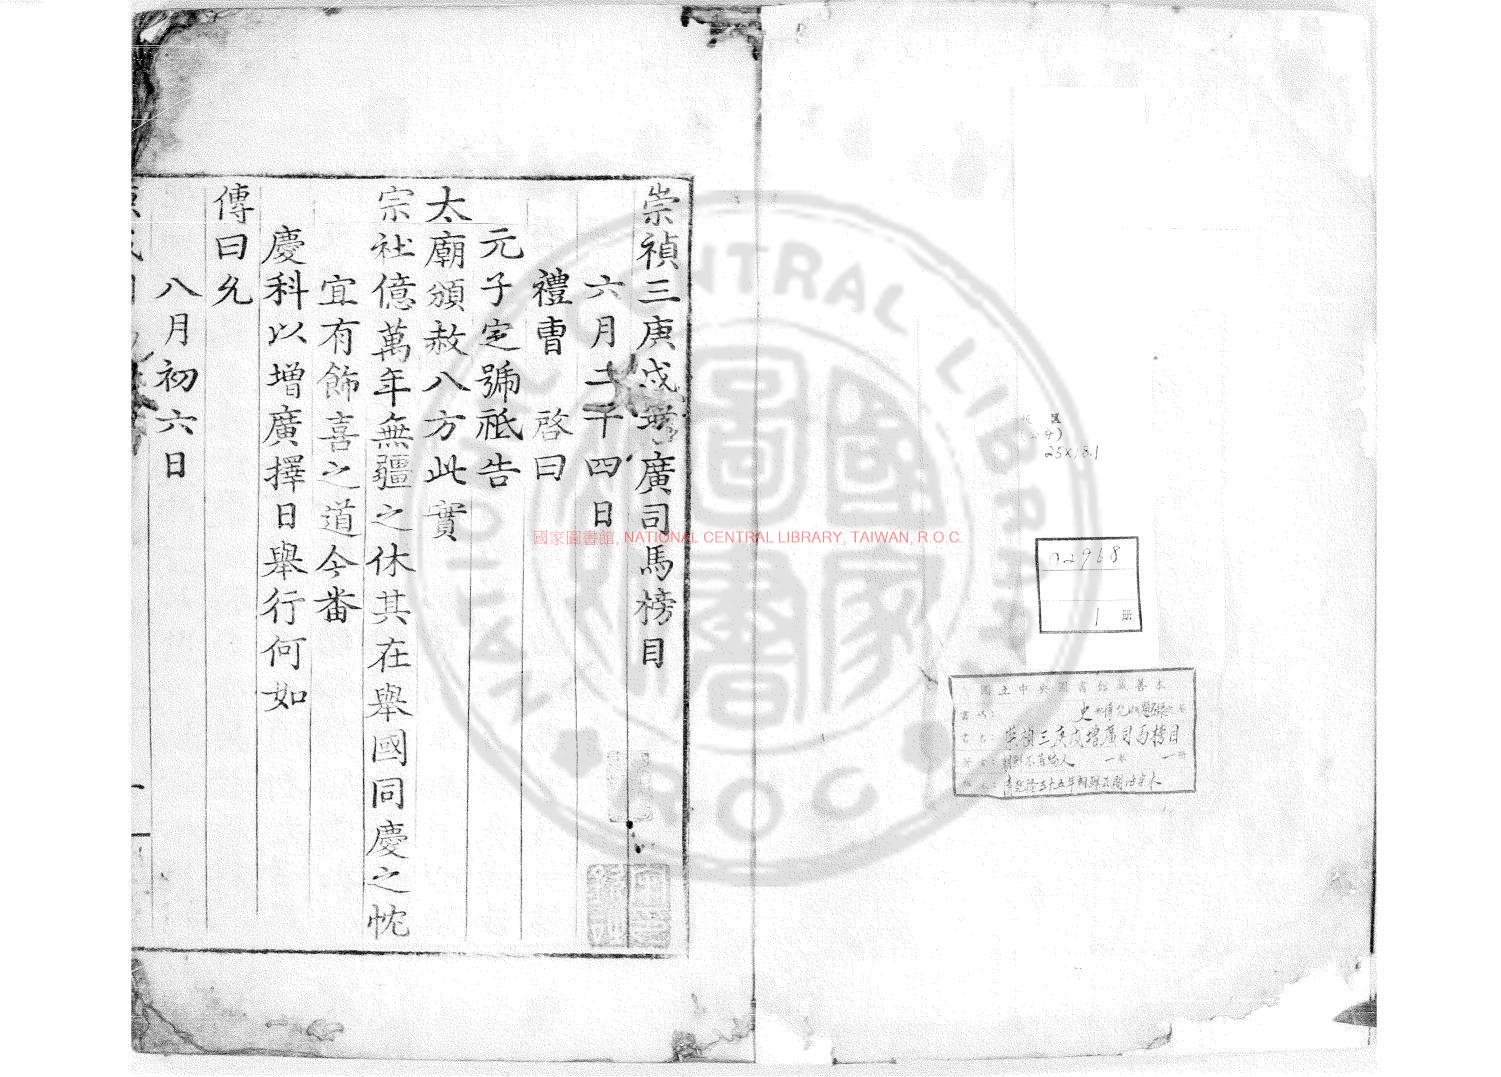 版匡
公分)
25×18.1
02968
1 册
國立中央圖書館藏善本
史
崇禎三庚戌增廣司馬榜目
朝鮮不著編人 一卷 一冊
清乾隆五十五年朝鮮
崇禎三庚戌增廣司馬榜目
六月二十四日
禮曹 啓曰
元子定號祗告
太廟頒赦八方此實
宗社億萬年無疆之休其在舉國同慶之忱
宜有飾喜之道今番
慶科以增廣擇日舉行何如
傳曰允
八月初六日
國家圖書館, NATIONAL CENTRAL LIBRARY, TAIWAN, R.O.C.
國家圖書
NATIONAL CENTRAL LIBRARY
R.O.C.